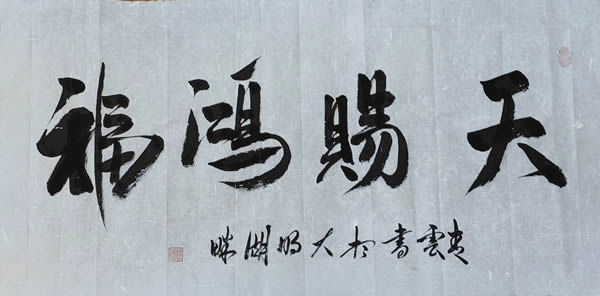 天賜鴻福
雲書於大明湖畔